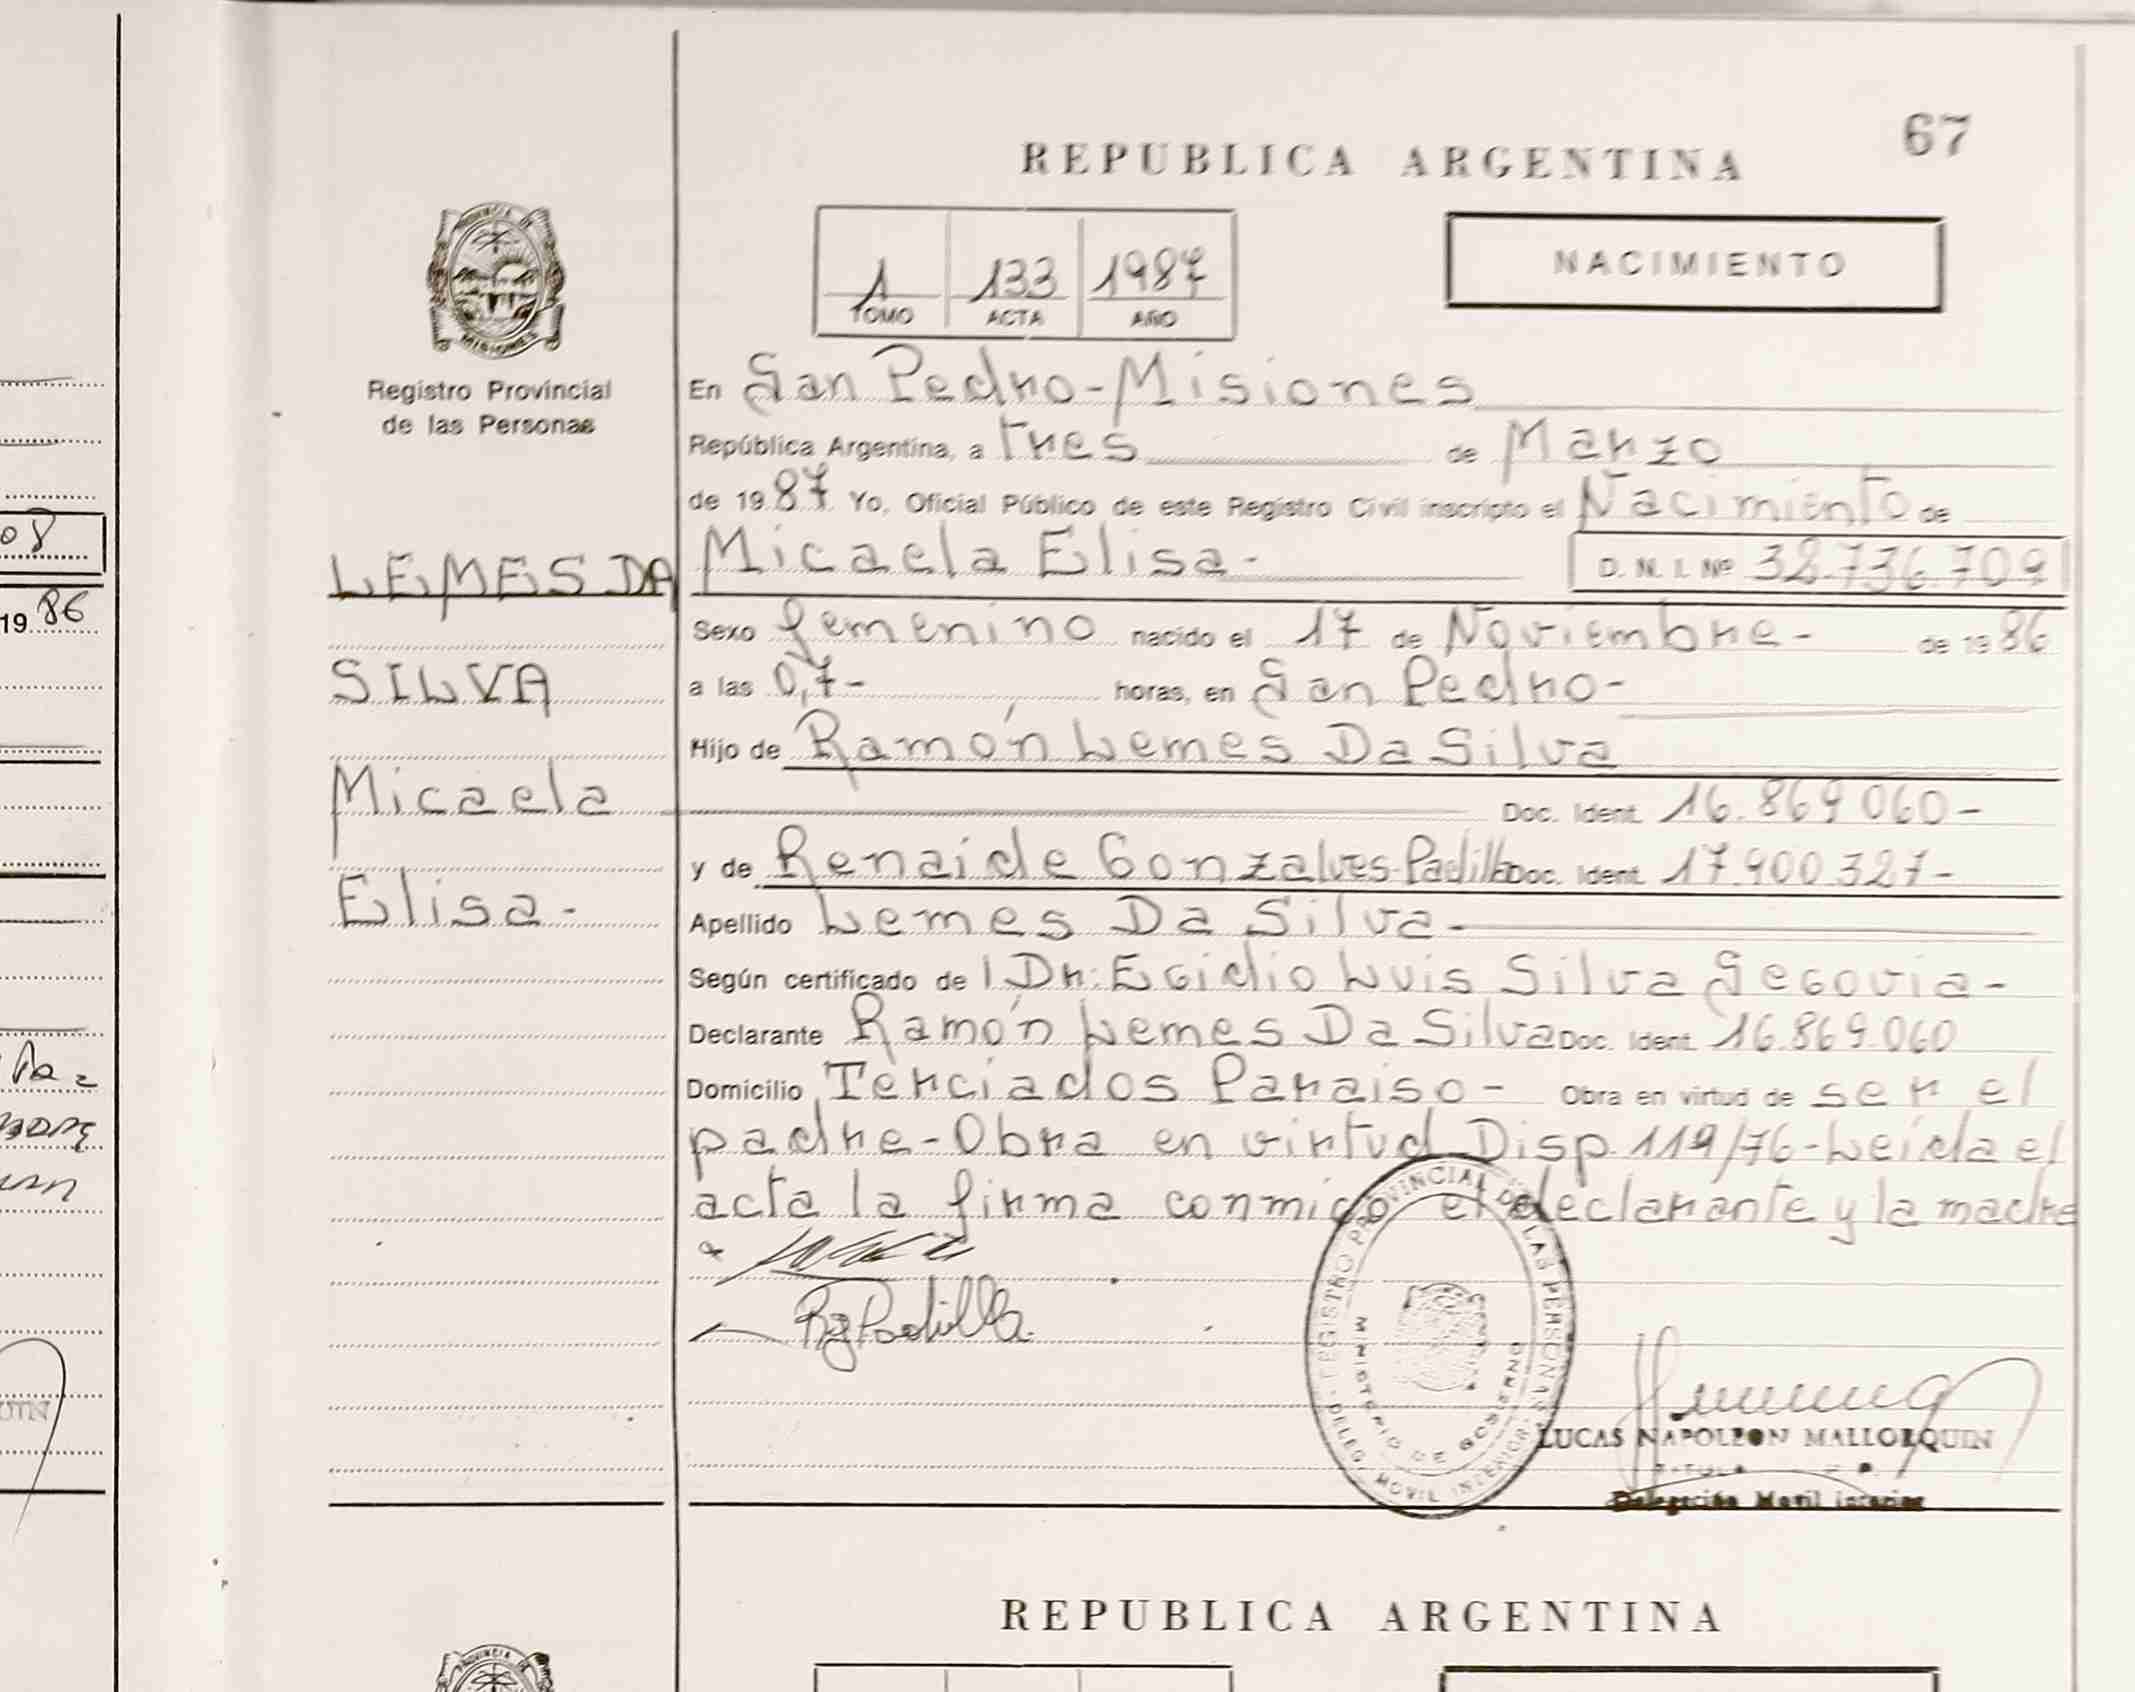 67
REPUBLICA ARGENTINA
NACIMIENTO
1 133 1987
TOMO ACTA AÑO
PROVINCIA DE MISIONES
Registro Provincial
de las Personas
08
1986
LEMES DA
SILVA
Micaela
Elisa-
En San Pedro-Misiones
República Argentina, a tres de Marzo
de 1987 Yo, Oficial Público de este Registro Civil inscripto el Nacimiento de
Micaela Elisa- D. N. I. Nº 32.736.709
Sexo femenino nacido el 17 de Noviembre- de 1986
a las 0,7- horas, en San Pedro-
Hijo de Ramón Lemes Da Silva
Doc. Ident. 16.869.060-
y de Renaide Gonzalves-Padilla Doc. Ident. 17.900.327-
Apellido Lemes Da Silva-
Según certificado de l Dr: Egidio Luis Silva Segovia-
Declarante Ramón Lemes Da Silva Doc. Ident. 16.869.060
Domicilio Terciados Paraiso- Obra en virtud de ser el
padre-Obra en virtud Disp. 119/76-Leída el
acta la firma conmigo el declarante y la madre
RgPadilla
REGISTRO PROVINCIAL DE LAS PERSONAS
DELEG. MOVIL INTERIOR
MINISTERIO DE GOBIERNO
LUCAS NAPOLEON MALLORQUIN
Delegación Movil Interior
REPUBLICA ARGENTINA
PROVINCIA DE